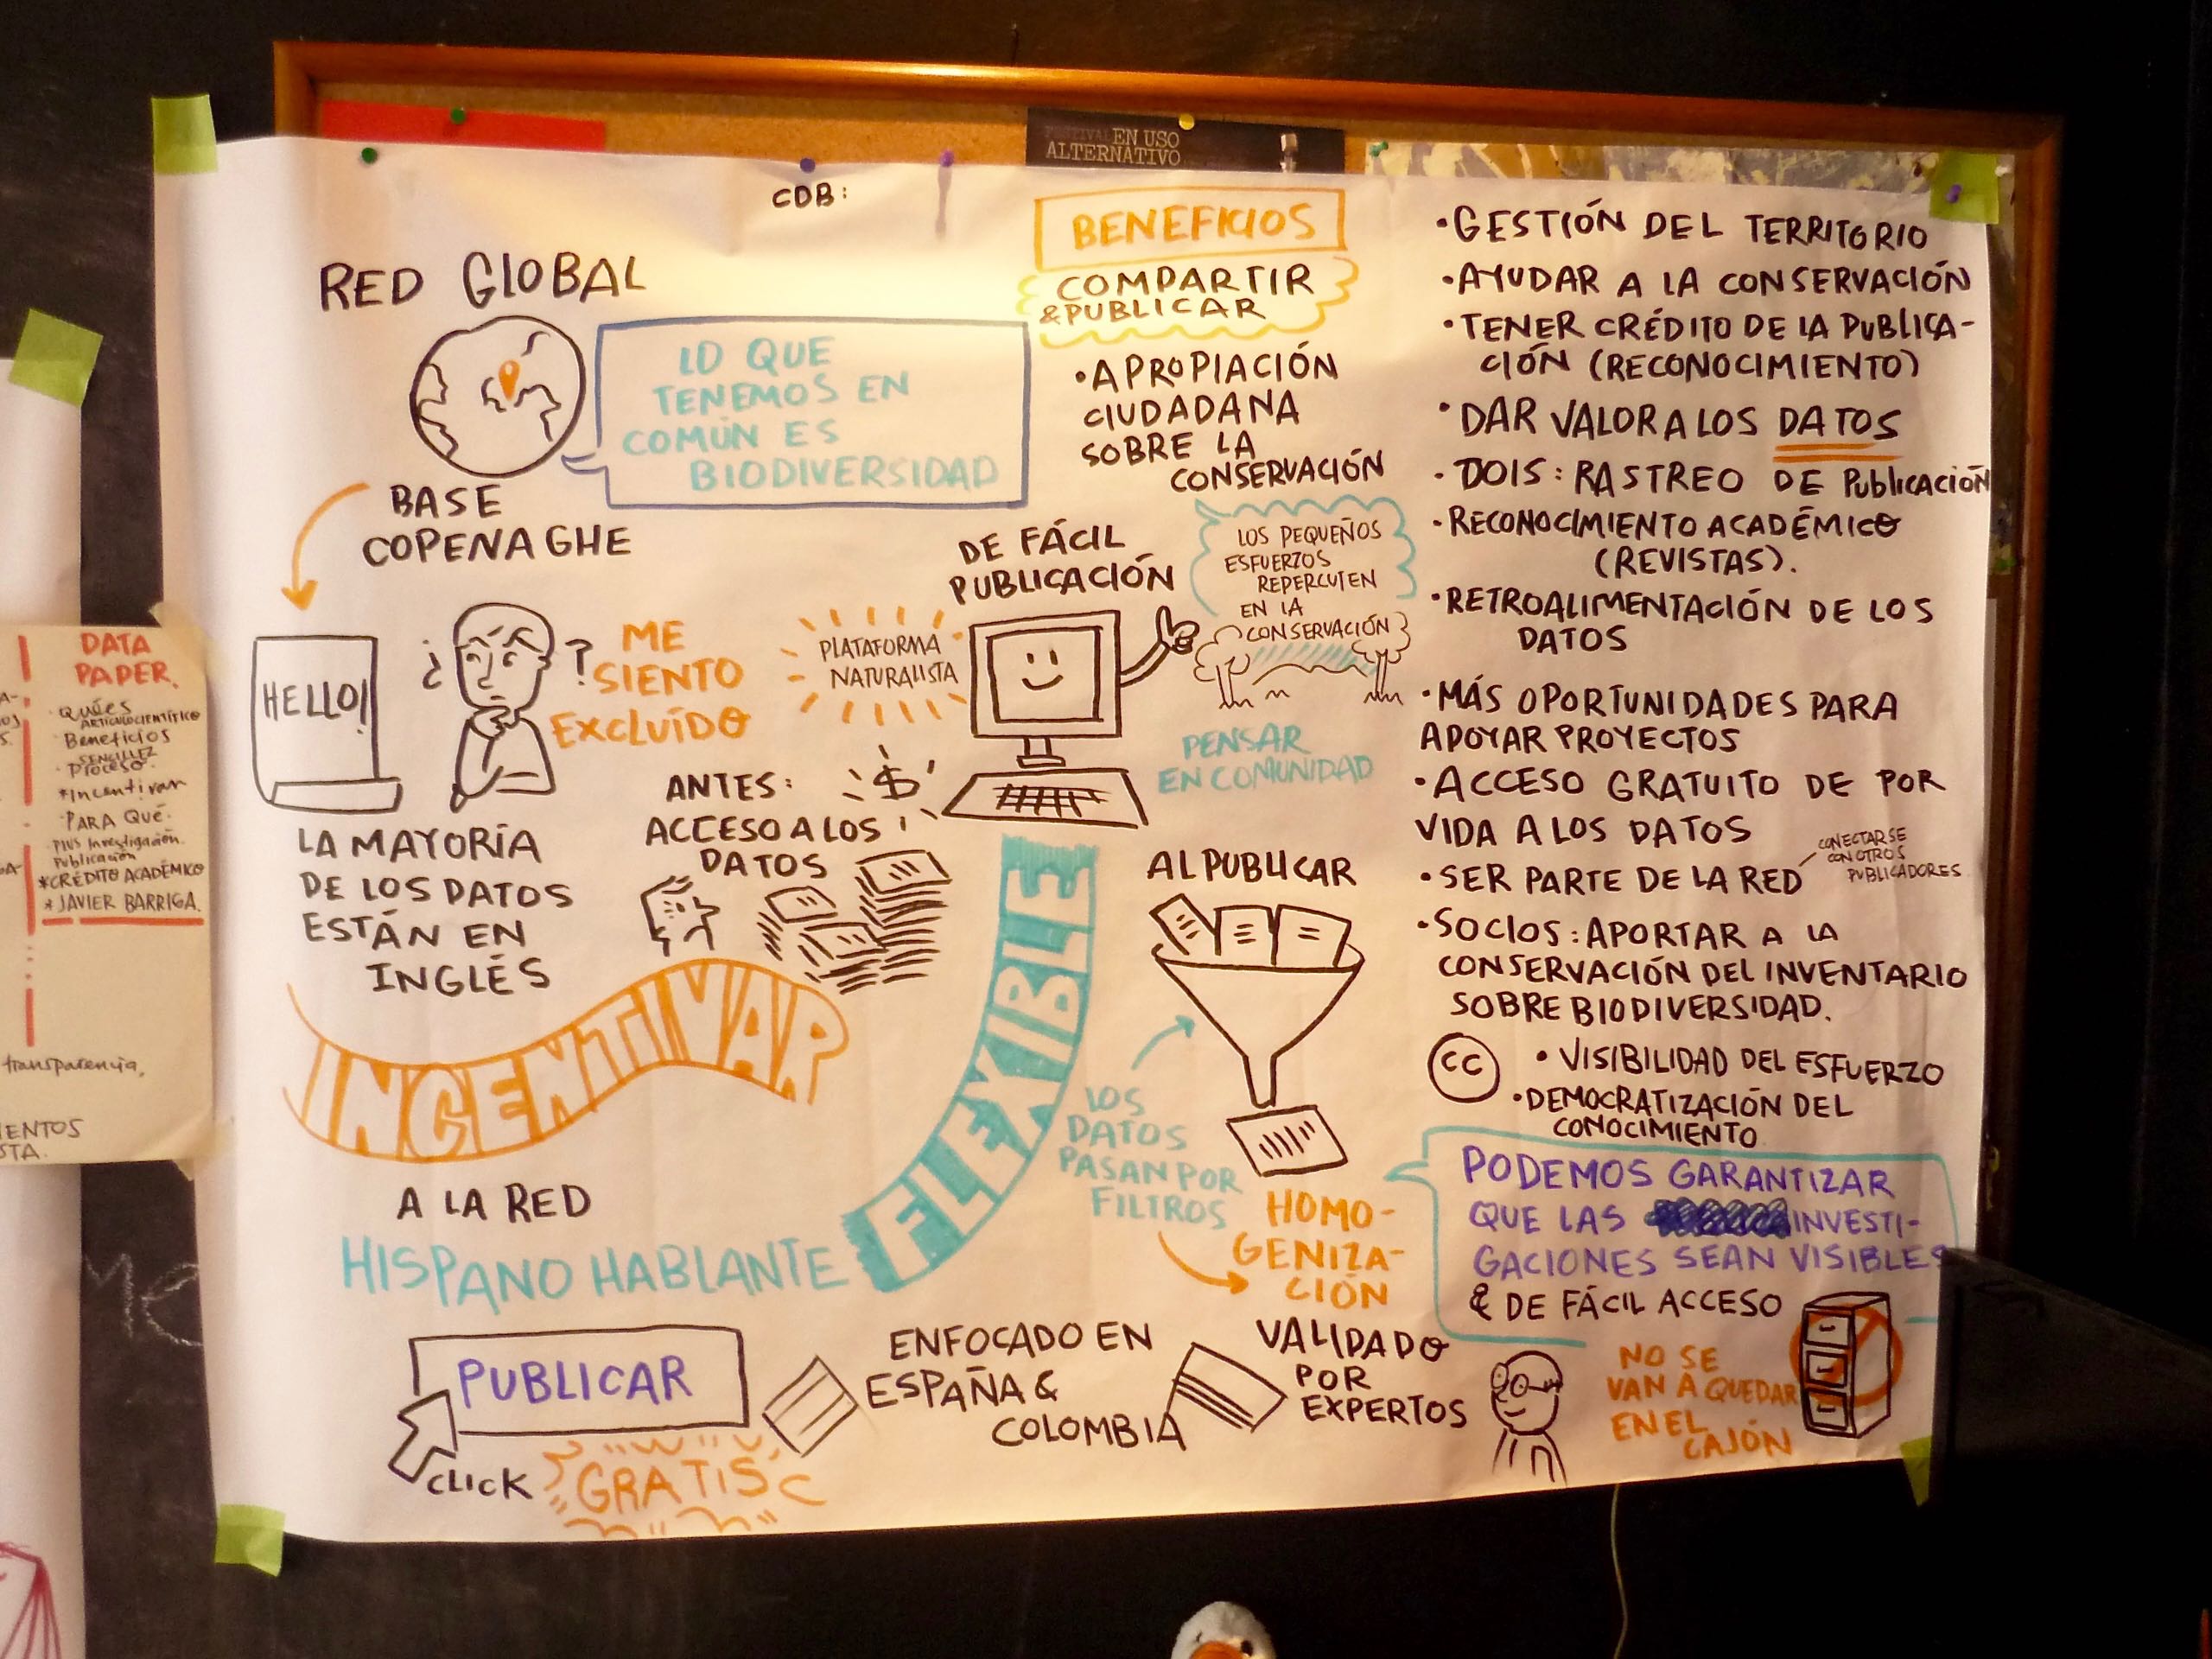 EN USO
ALTERNATIVO
CDB:
RED GLOBAL
LO QUE
TENEMOS EN
COMÚN ES
BIODIVERSIDAD
BASE
COPENAGHE
HELLO!
¿ ?
ME
SIENTO
EXCLUÍDO
LA MAYORÍA
DE LOS DATOS
ESTÁN EN
INGLÉS
ANTES:
ACCESO A LOS
DATOS
$
PLATAFORMA
NATURALISTA
DE FÁCIL
PUBLICACIÓN
INCENTIVAR
A LA RED
HISPANO HABLANTE
FLEXIBLE
PUBLICAR
CLICK
GRATIS
ENFOCADO EN
ESPAÑA &
COLOMBIA
VALIDADO
POR
EXPERTOS
BENEFICIOS
COMPARTIR
& PUBLICAR
•APROPIACIÓN
CIUDADANA
SOBRE LA
CONSERVACIÓN
LOS PEQUEÑOS
ESFUERZOS
REPERCUTEN
EN LA
CONSERVACIÓN
PENSAR
EN COMUNIDAD
AL PUBLICAR
LOS
DATOS
PASAN POR
FILTROS
HOMO-
GENIZA-
CIÓN
•GESTIÓN DEL TERRITORIO
•AYUDAR A LA CONSERVACIÓN
•TENER CRÉDITO DE LA PUBLICA-
CIÓN (RECONOCIMIENTO)
•DAR VALOR A LOS DATOS
•DOIS: RASTREO DE PUBLICACIÓN
•RECONOCIMIENTO ACADÉMICO
(REVISTAS).
•RETROALIMENTACIÓN DE LOS
DATOS
•MÁS OPORTUNIDADES PARA
APOYAR PROYECTOS
•ACCESO GRATUITO DE POR
VIDA A LOS DATOS
•SER PARTE DE LA RED
CONECTARSE
CON OTROS
PUBLICADORES
•SOCIOS: APORTAR A LA
CONSERVACIÓN DEL INVENTARIO
SOBRE BIODIVERSIDAD.
CC
•VISIBILIDAD DEL ESFUERZO
•DEMOCRATIZACIÓN DEL
CONOCIMIENTO
PODEMOS GARANTIZAR
QUE LAS INVESTI-
GACIONES SEAN VISIBLES
& DE FÁCIL ACCESO
NO SE
VAN A QUEDAR
EN EL
CAJÓN
DATA
PAPER.
ARTÍCULO CIENTÍFICO
Beneficios
SENCILLEZ
Proceso.
*Incentivar
PARA QUÉ.
Investigación.
Publicación
*CRÉDITO ACADÉMICO
*JAVIER BARRIGA.
transparencia,